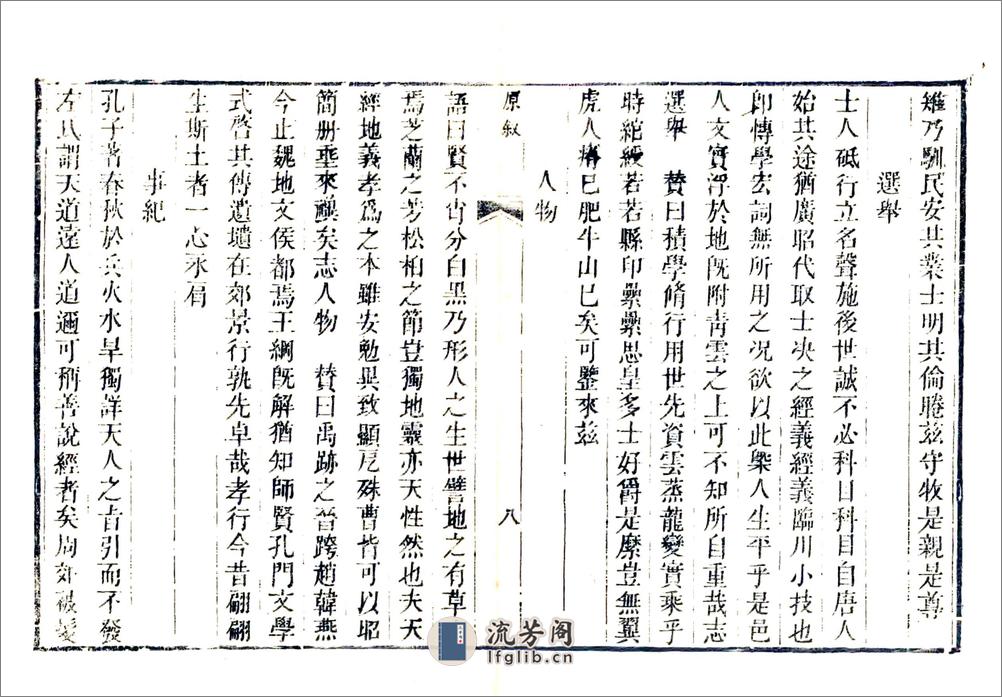 雉乃馴民安其業士明其倫睠兹守牧是親是尊
選舉
士人砥行立名聲施後世誠不必科目科目自唐人
始其途猶廣昭代取士决之經義經義臨川小技也
卽博學宏詞無所用之况欲以此槩人生平乎是邑
人文實浮於地旣附靑雲之上可不知所自重哉志
選舉 贊曰積學脩行用世先資雲蒸龍變實乘乎
時綰綬若若縣印纍纍思皇多士好爵是縻豈無翼
虎人瘠已肥牛山已矣可鑒來兹
人物
原叙 八
語曰賢不肖分白黑乃形人之生世譬地之有草
焉芝蘭之芳松柏之節豈獨地靈亦天性然也夫天
經地義孝爲之本雖安勉異致顯 殊曹皆可以昭
簡册垂來禩矣志人物 贊曰禹跡之晉跨趙韓燕
今止魏地文侯都焉王綱旣解猶知師賢孔門文學
式啓其傳遺墟在郊景行孰先卓哉孝行今昔翩翩
生斯土者一心永肩
事紀
孔子著春秋於兵火水旱獨詳天人之㫖引而不發
左氏謂天道遠人道邇可稱善說經者矣周郊被髮
流芳阁
lfglib.cn